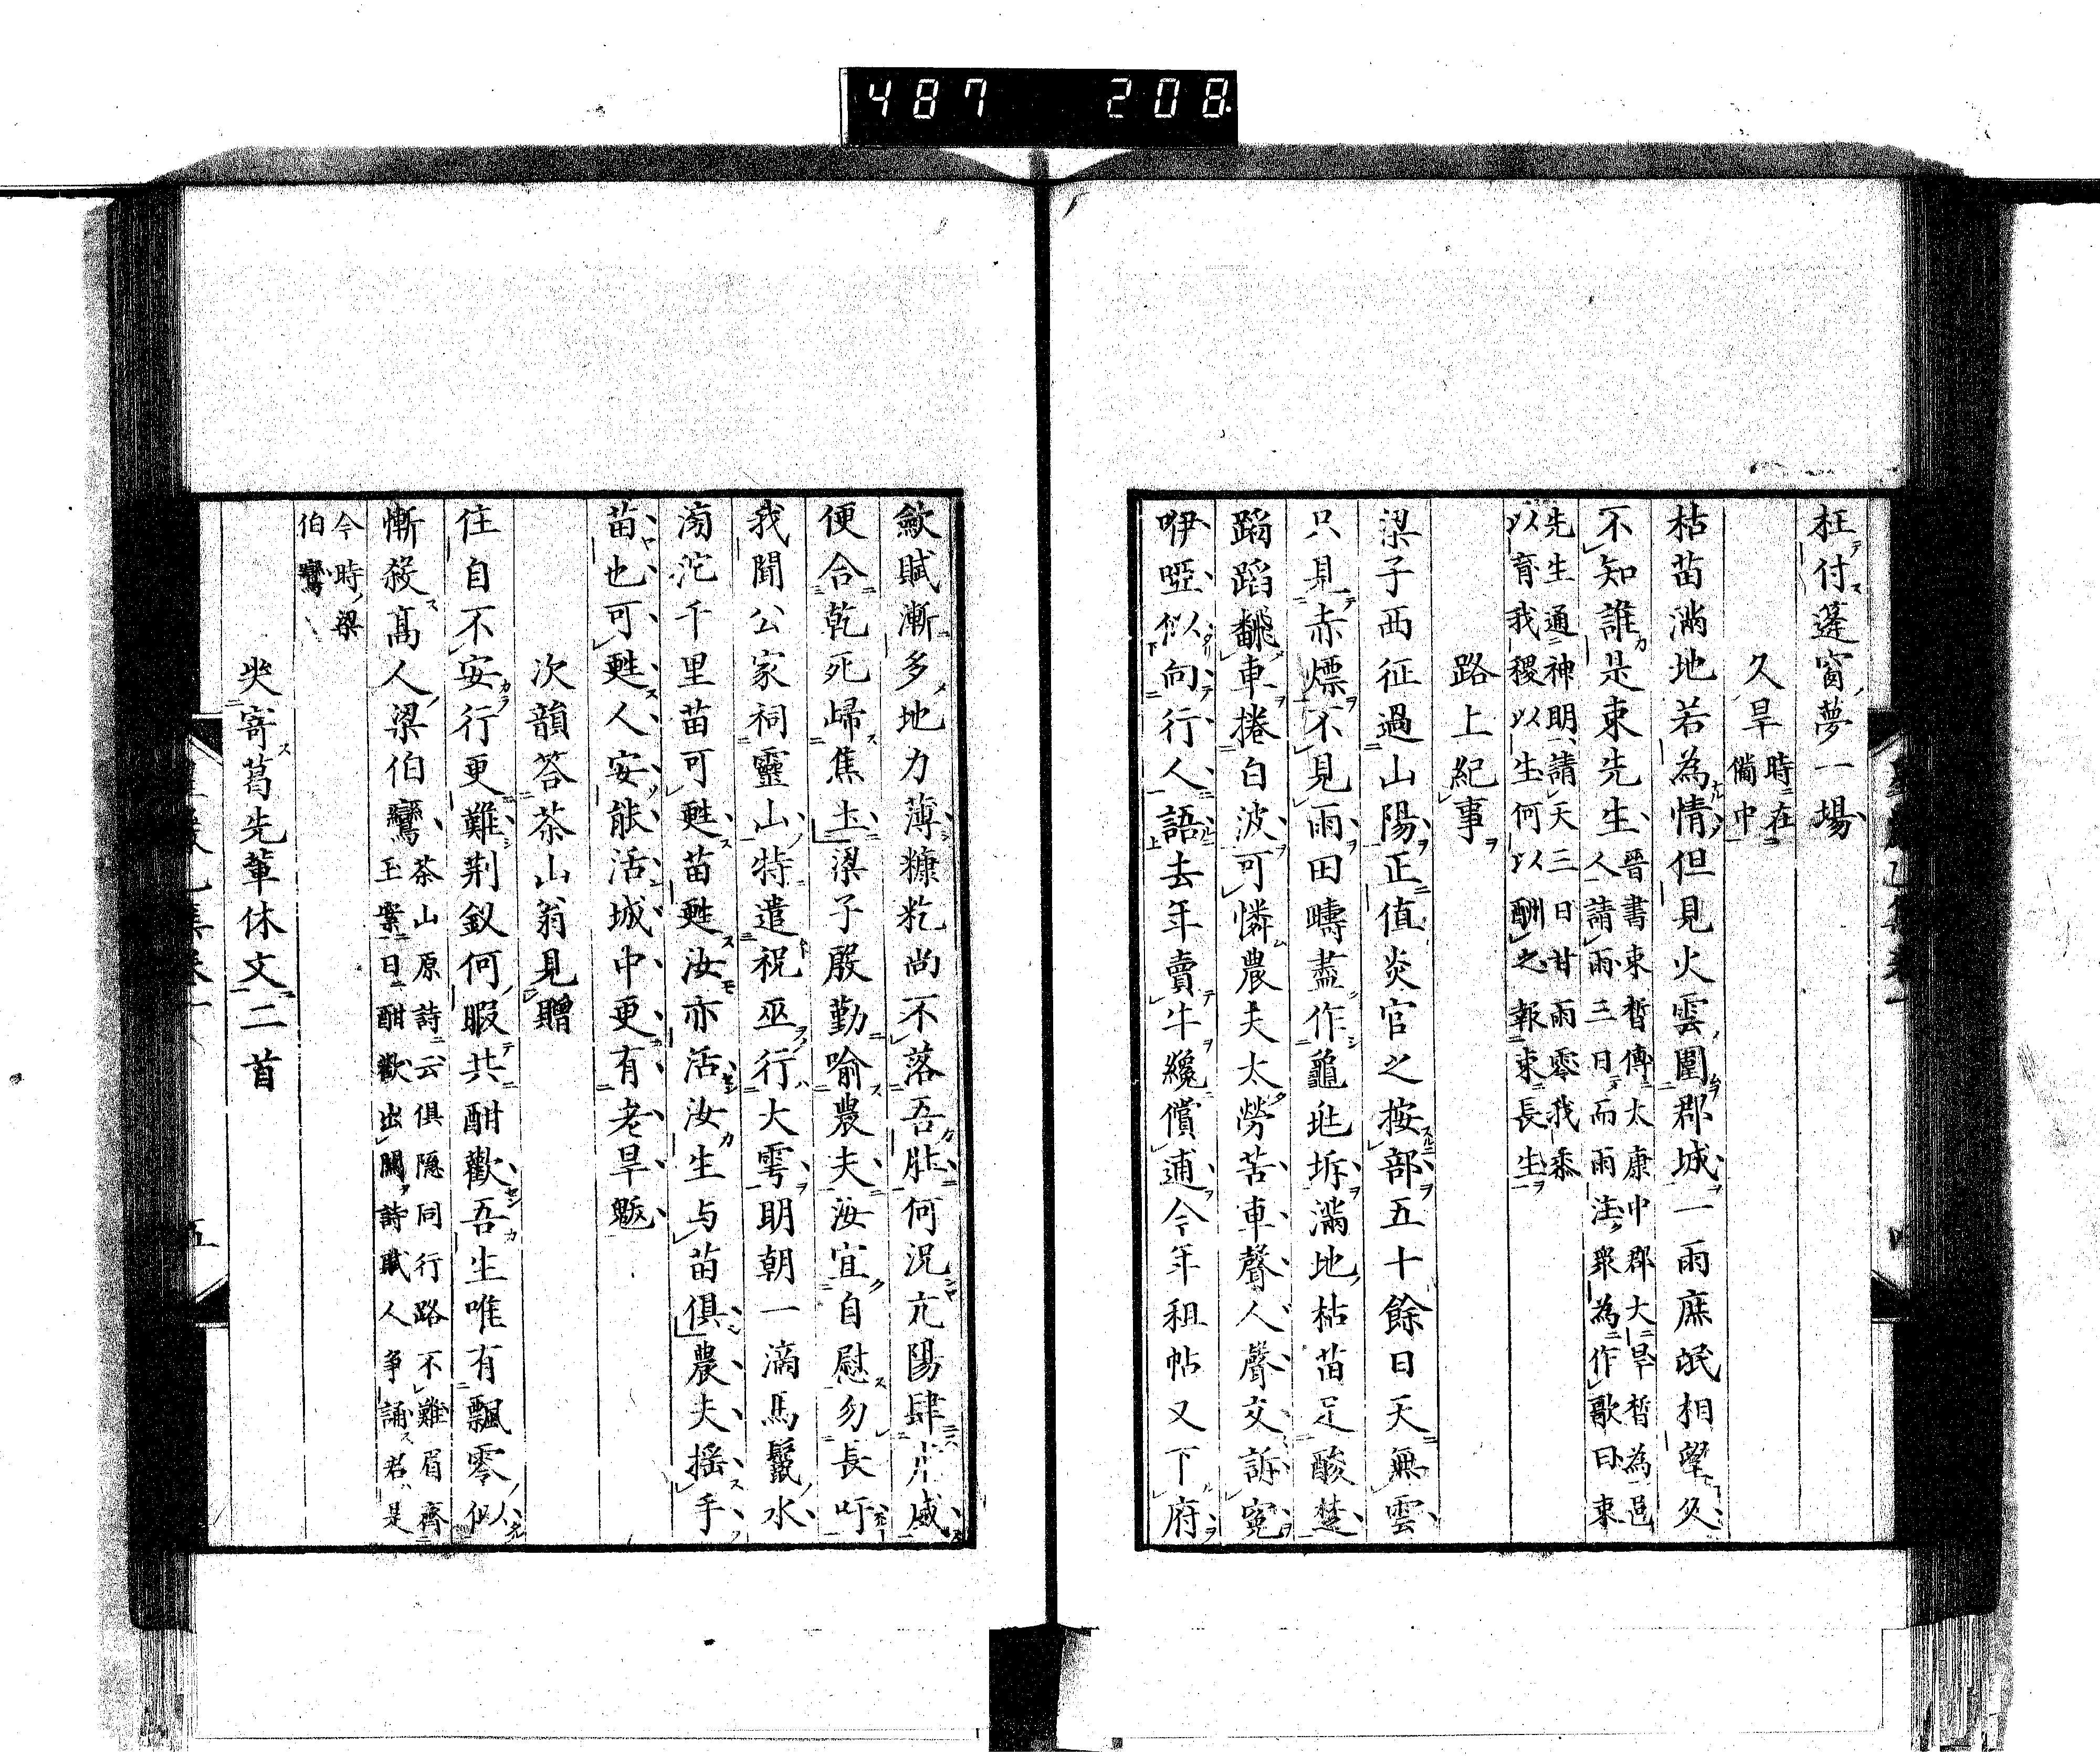 487 208
枉付蓬窗夢一場
久旱 時在
備中
枯苗滿地若為情但見火雲圍郡城一雨庶氓相望久
不知誰是束先生 晋書束晳傳太康中郡大旱晳為邑
人請雨三日而雨注衆為作歌曰束
先生通神明請天三日甘雨零我黍
以育我稷以生何以酬之報束長生
路上紀事
梁子西征過山陽正値炎官之按部五十餘日天無雲
只見赤熛不見雨田疇盡作龜兆坼滿地枯苗足酸楚
蹈蹈飜車捲白波可憐農夫太勞苦車聲人聲交訴寃
咿啞似向行人語去年賣牛纔償逋今年租帖又下府
歛賦漸多地力薄糠籺尚不落吾肚何況亢陽肆庴威
便合乾死歸焦土梁子殷勤喻農夫汝宜自慰勿長吁
我聞公家祠靈山特遣祝巫行大雩明朝一滴馬鬣水
滂沱千里苗可甦苗甦汝亦活汝生与苗俱農夫搖手
苗也可甦人安能活城中更有老旱魃
次韻答茶山翁見贈
住自不安行更難荆釵何暇共酣歡吾生唯有飄零似
慚殺髙人梁伯鸞 茶山原詩云俱隱同行路不難眉齊
玉案日酣歡出關詩賦人爭誦君是
今時梁
伯鸞
奘寄葛先輩休文二首
五